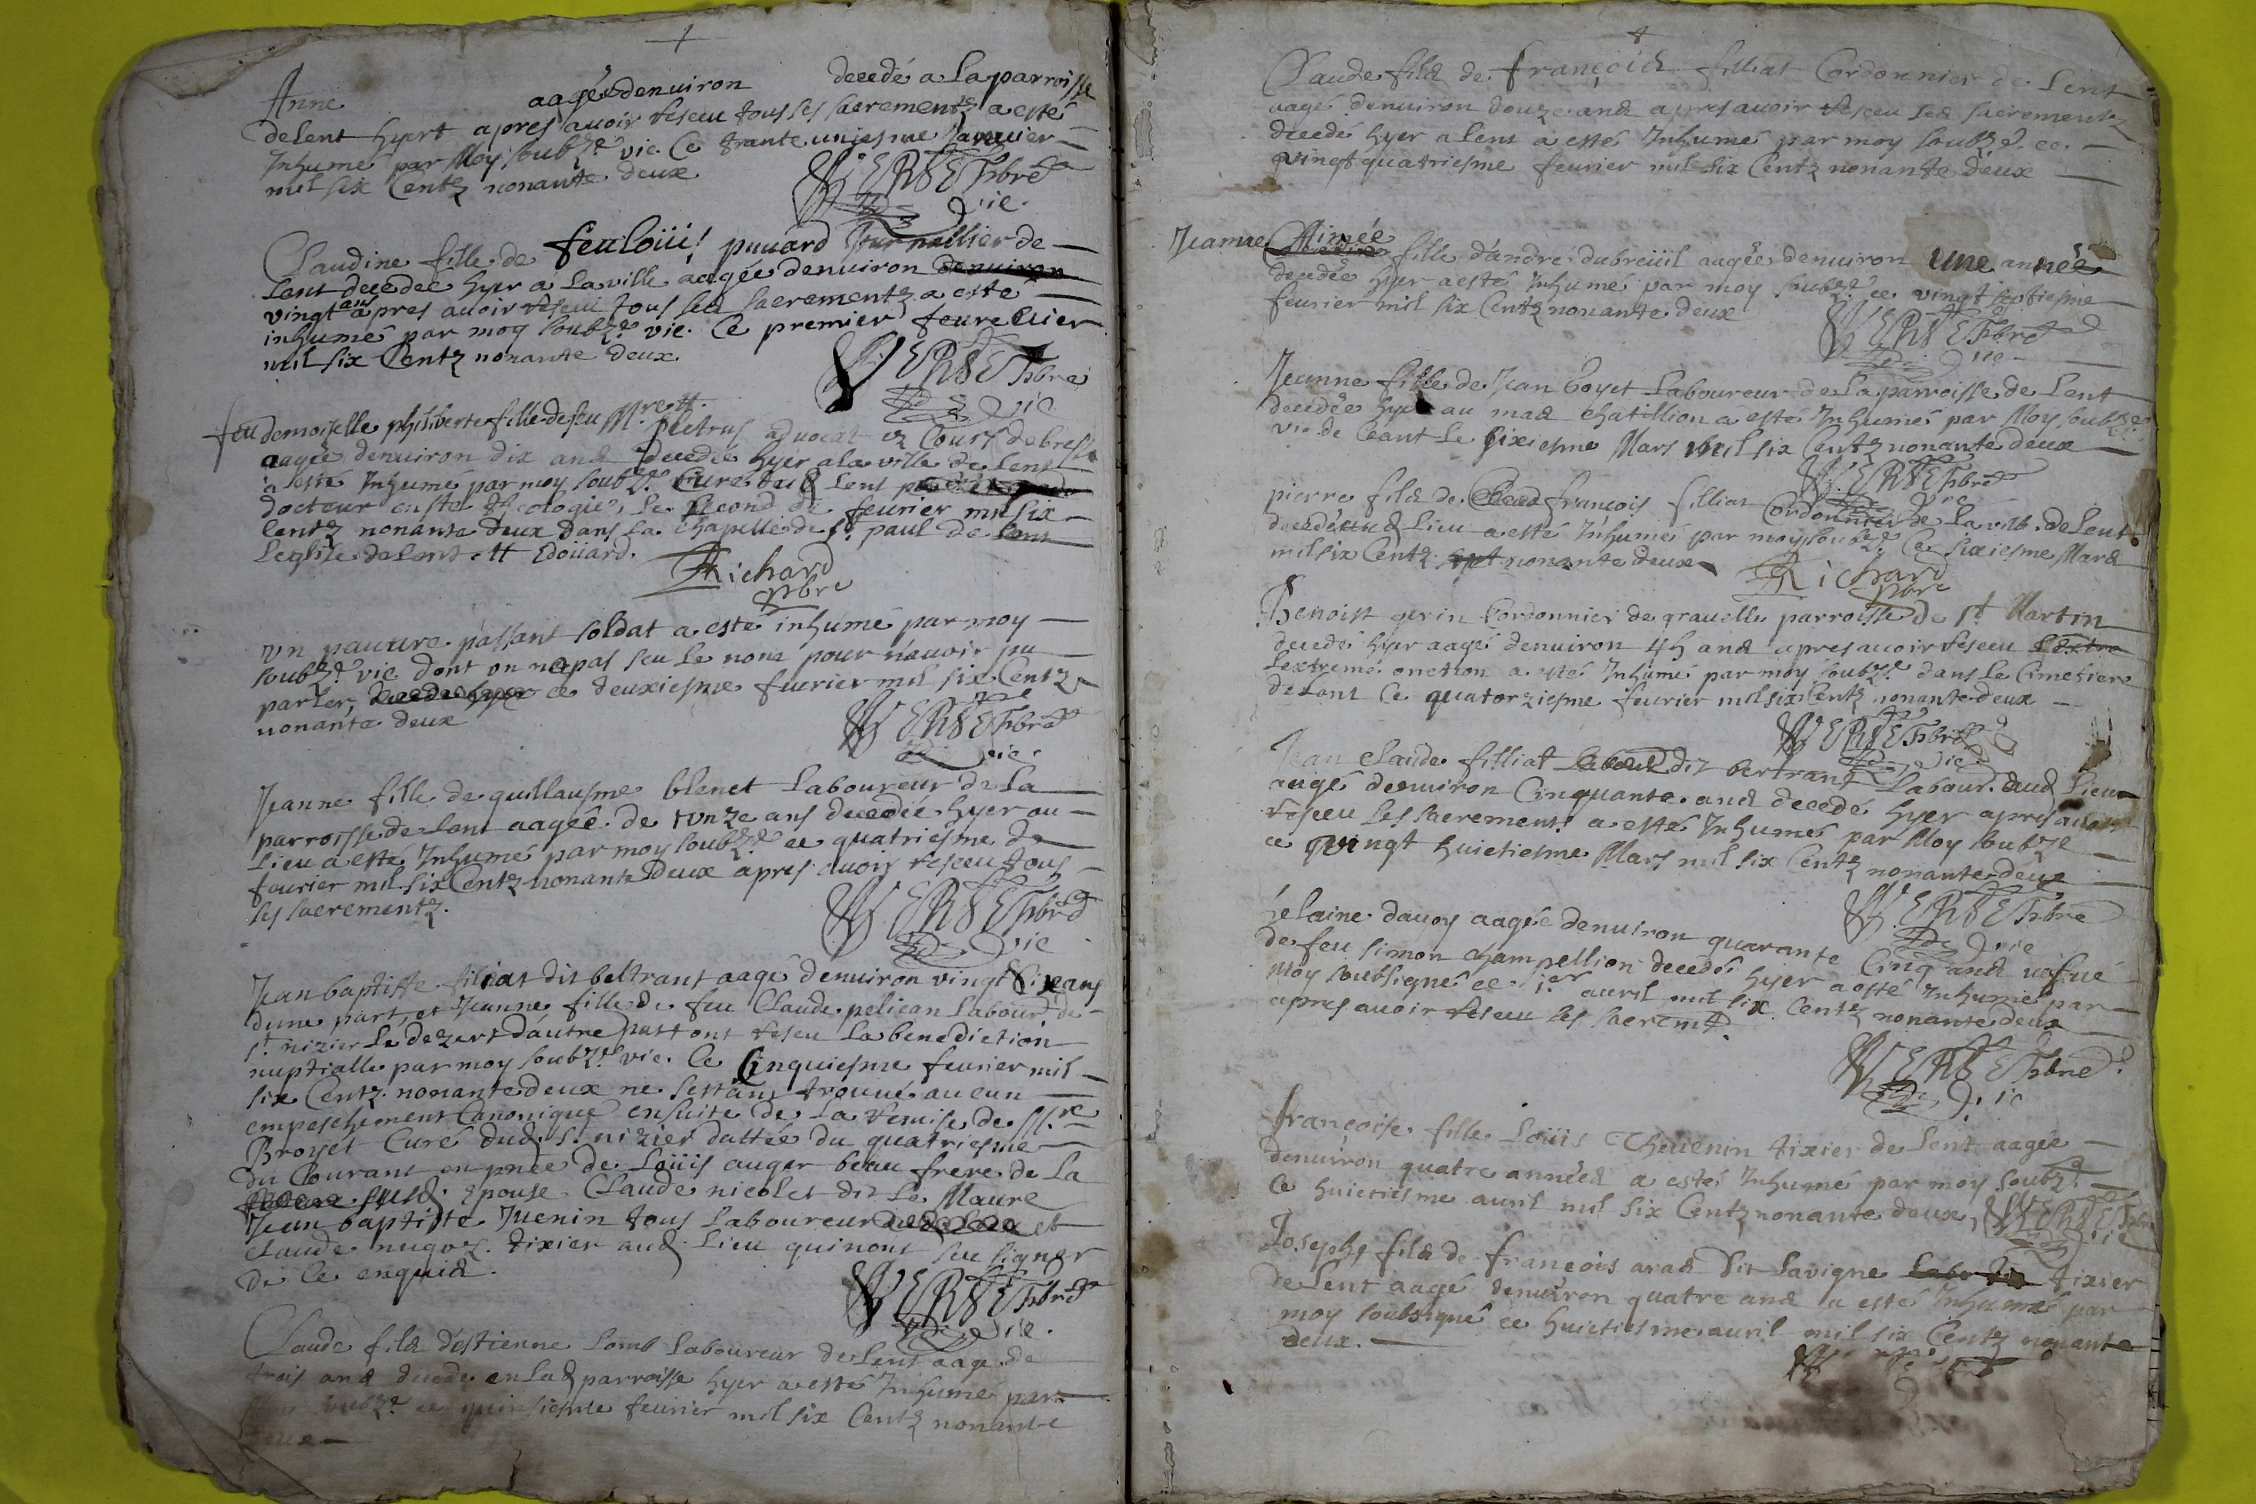 Anne aagée denuiron decedé a la parroisse
de Lent hyert apres auoir reseu tous les sacrementz a esté
Inhumé par Moy soubz.é vic. Ce trante uniesme Januier
mil six Centz nonante deux
VERSET pbre
vic.
Claudine fille de feu loüii puuard Journallier de
Lent decedee hyer a la ville aagée denuiron denuiron
vingt ans apres auoir reseu tous sed sacrementz a esté
inhumé par moy soubz.é vic. Ce premier feurellier
mil six Centz nonante deux.
VERSET pbre
vic
feu demoiselle philiberte fille de feu Mre
pietrus aduocat ez Cours de bresse
aagée denuiron dix and decedée hyer a la ville de Lent
a esté Inhumé par moy soubz.é Curé dud Lent
docteur en ste theologie, le second de feurier mil six
Centz nonante deux dans la chapelle de st. paul de
Leglise de Lent Edoüard.
Richard
pbre
un pauure passant soldat a esté inhumé par moy
soubz.é vic dont on na pas seu le nom pour nauoir pu
parler, decede hyer ce deuxiesme feurier mil six Centz
nonante deux
VERSET pbre
vic.
Jeanne fille de guillausme blenet Laboureur de La
parroisse de Lent aagée de unze ans decedée hyer au
Lieu a esté Inhumé par moy soubz.é ce quatriesme de
feurier mil six Centz nonante deux apres auoir reseu tous
ses sacrementz.
VERSET pbre
vic
Jean baptiste filliat dit beltrant aagé denuiron vingt six ans
dune part, et Jeanne fille de feu Claude pelican Labour de
st. nizier le dezert dautre part ont reseu La benediction
nuptialle par moy soubz.é vic. Ce Cinquiesme feurier mil
six Centz nonante deux ne sestant trouué aucun
empeschement Canonique ensuite de La remise de Mre
Broyet Curé dud. st. nizier dattée du quatriesme
du Courant en pnce de Loüis auger beau frere de La
epouse Claude nicolet dit Le Maure
Jean baptiste Juenin tous Laboureur et
Claude tixier aud Lieu quinont seu signer
de Ce enquid.
VERSET pbre
vic.
Claude fild destienne Lomb Laboureur de Lent aage de
trois and decede en lad parroisse hyer a esté Inhumé par
moy soubz.é ce quinsiesme feurier mil six Centz nonante
deux
Claude fild de françoid filliat Cordonnier de Lent
aagé denuiron douze and apres auoir reseu sed sacrementz
decedé hyer a Lent a esté Inhumé par moy soubz.é ce
vingt quatriesme feurier mil six Centz nonante deux
Jeanne Aimée fille dandré dubreüil aagée denuiron une année
decedée hyer a esté Inhumé par moy soubz.é ce vingt septiesme
feurier mil six Centz nonante deux
VERSET pbre
vic
Jeanne fille de Jean boyet Laboureur de La parroisse de Lent
decedée hyer au mad chatillion a esté Inhumé par Moy soubz.é
vic de Ceant Le sixiesme Mars mil six Centz nonante deux
VERSET pbre
vic
pierre fild de françois filliat Cordonnier de La ville de Lent
decedé aud Lieu a esté Inhumé par moy soubz.é Ce sixiesme Mard
mil six Centz sept nonante deux
Richard
pbre
Benoist gerin Cordonnier de grauelle parroisse de st Martin
decedé hyer aagé denuiron 45 and apres auoir reseu Lextre
Lextreme onction a esté Inhumé par moy soubz.é dans Le Cimetiere
de Lent Ce quatorziesme feurier mil six Centz nonante deux
VERSET pbre
vic
Jean Claude filliat dit bertrant Labour. dud Lieu
aagé denuiron Cinquante and decedé hyer apres auoir
reseu Les sacrement a esté Inhumé par Moy soubz.é
ce vingt huictiesme Mars mil six Centz nonante deux
VERSET pbre
vic
helaine dauoy aagée denuiron quarante Cinq and uefue
de feu simon champellion decedée hyer a esté Inhumé par
Moy soubsigné ce 1er auril mil six Centz nonante deux
apres auoir reseu Les sacremt.
VERSET pbre
vic
françoise fille Loüis Theuenin tixier de Lent aagée
denuiron quatre annéed a esté Inhumé par moy soubz.é
Ce huictiesme auril mil six Centz nonante deux, VERSET pbre
vic
Joseph fild de françois arad dit Lavigne tixier
de Lent aagé denuiron quatre and a esté Inhumé par
moy soubsigné ce huictiesme auril mil six Centz nonante
deux.